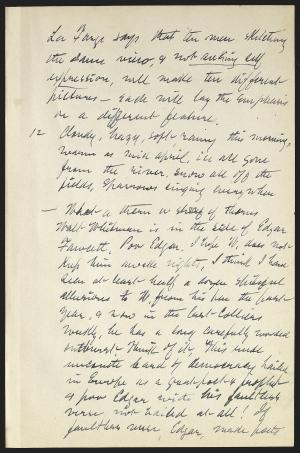 La Farge says that ten men sketching
the same view, & not seeking self
expression, will make ten different
pictures — each will lay the emphasis
on a different feature.
12 Cloudy, hazy, soft rainy this morning,
warm as mid april, ice all gone
from the river, snow all off the
fields, Sparrows singing everywhere
— What a thorn or sheaf of thorns
Walt Whitman is in the side of Edgar
Fawcett. Poor Edgar, I hope W. does not
keep him awake nights, I think I have
seen at least half a dozen
allusions to W, from his pen the past
year, & now in the last Colliers
weekly, he has a long carefully worded
outburst. Think of it, this rude
uncouth bard of democracy hailed
in Europe as a great poet & prophet
& poor Edgar with his faultless
verse not hailed at all! If
faultless verse, Edgar, made poets